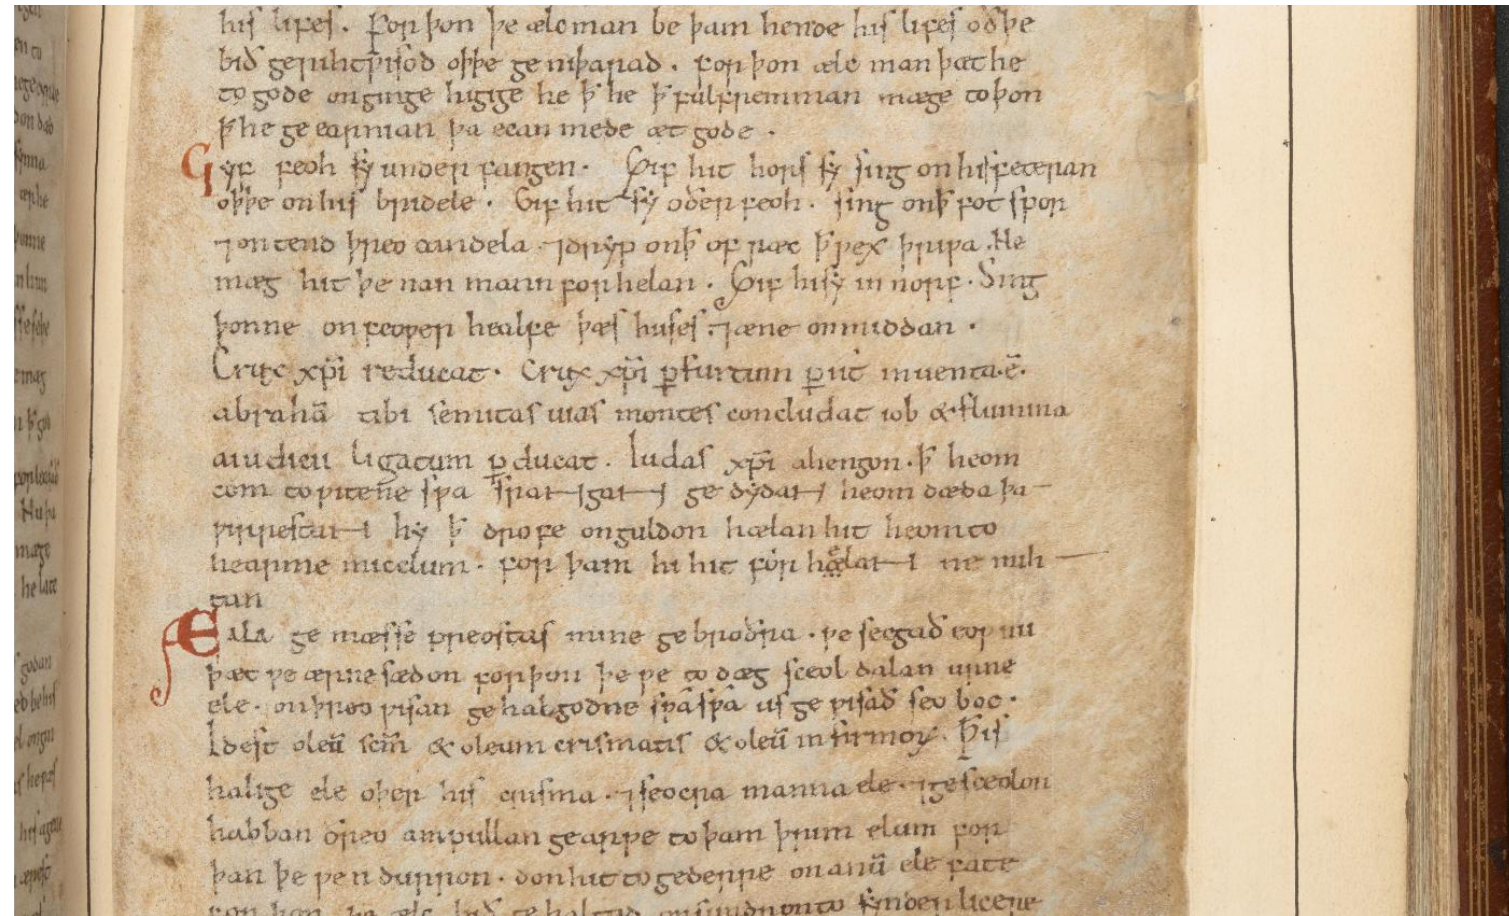 his lifes. Forþon þe ælc man be þam hende his lifes oðþe
bið gerihtƿisod oþþe geniþarad. forþon ælc man þæt he
to gode onginge higige he ꝥ he ꝥ fulfremman mæge to þon
ꝥ he geearnian þa ecan mede æt gode.
Gyf feoh sy underfangen. Gif hit hors sy sing on his feteran
oþþe on his bridele. Gif hit sy oðer feoh. sing on ꝥ fotspor
⁊ ontend þreo candela ⁊ dryp on ꝥ ofræc ꝥ ƿex þriƿa. Ne
mæg hit þe nan mann forhelan. Gif hi sy innorf. Sing
þonne on feoƿer healfe þæs huses ⁊ æne onmiddan.
Crux xp̄i reducat. Crux xp̄i ꝑ furtum ꝑiit inuenta ē.
abrahā tibi semitas uias montes concludat iob & flumina
ad iudiciū ligatum ꝑducat. Iudas xp̄i ahengon. ꝥ heom
com to ƿite sƿa gedydan heom dæda þa
ƿirrestan hy ꝥ drofe onguldon hælan hit heom to
hearme miclum. for þam hi hit forhælan ne mih
tan
Æala ge mæsse preostas mine gebroðra. ƿe secgað eoƿ nu
þæt ƿe ærne sædon forþon þe ƿe to dæg sceoldalan urne
ele. on þreo ƿisan gehalgodne sƿa sƿa us geƿisað seo boc.
Idest oleū scm̄ & oleum crismatis & oleū infirmoꝝ. Þis
halige ele oþer his crisma. ⁊ seocra manna ele. ⁊ ge sceolon
habban ðreo ampullan gearƿe to þam þrim elum for
þan þe ƿe n durron. don hit togedenre on anū ele fate
forþon þe ele bið gehalgod onsundron to synderlicene